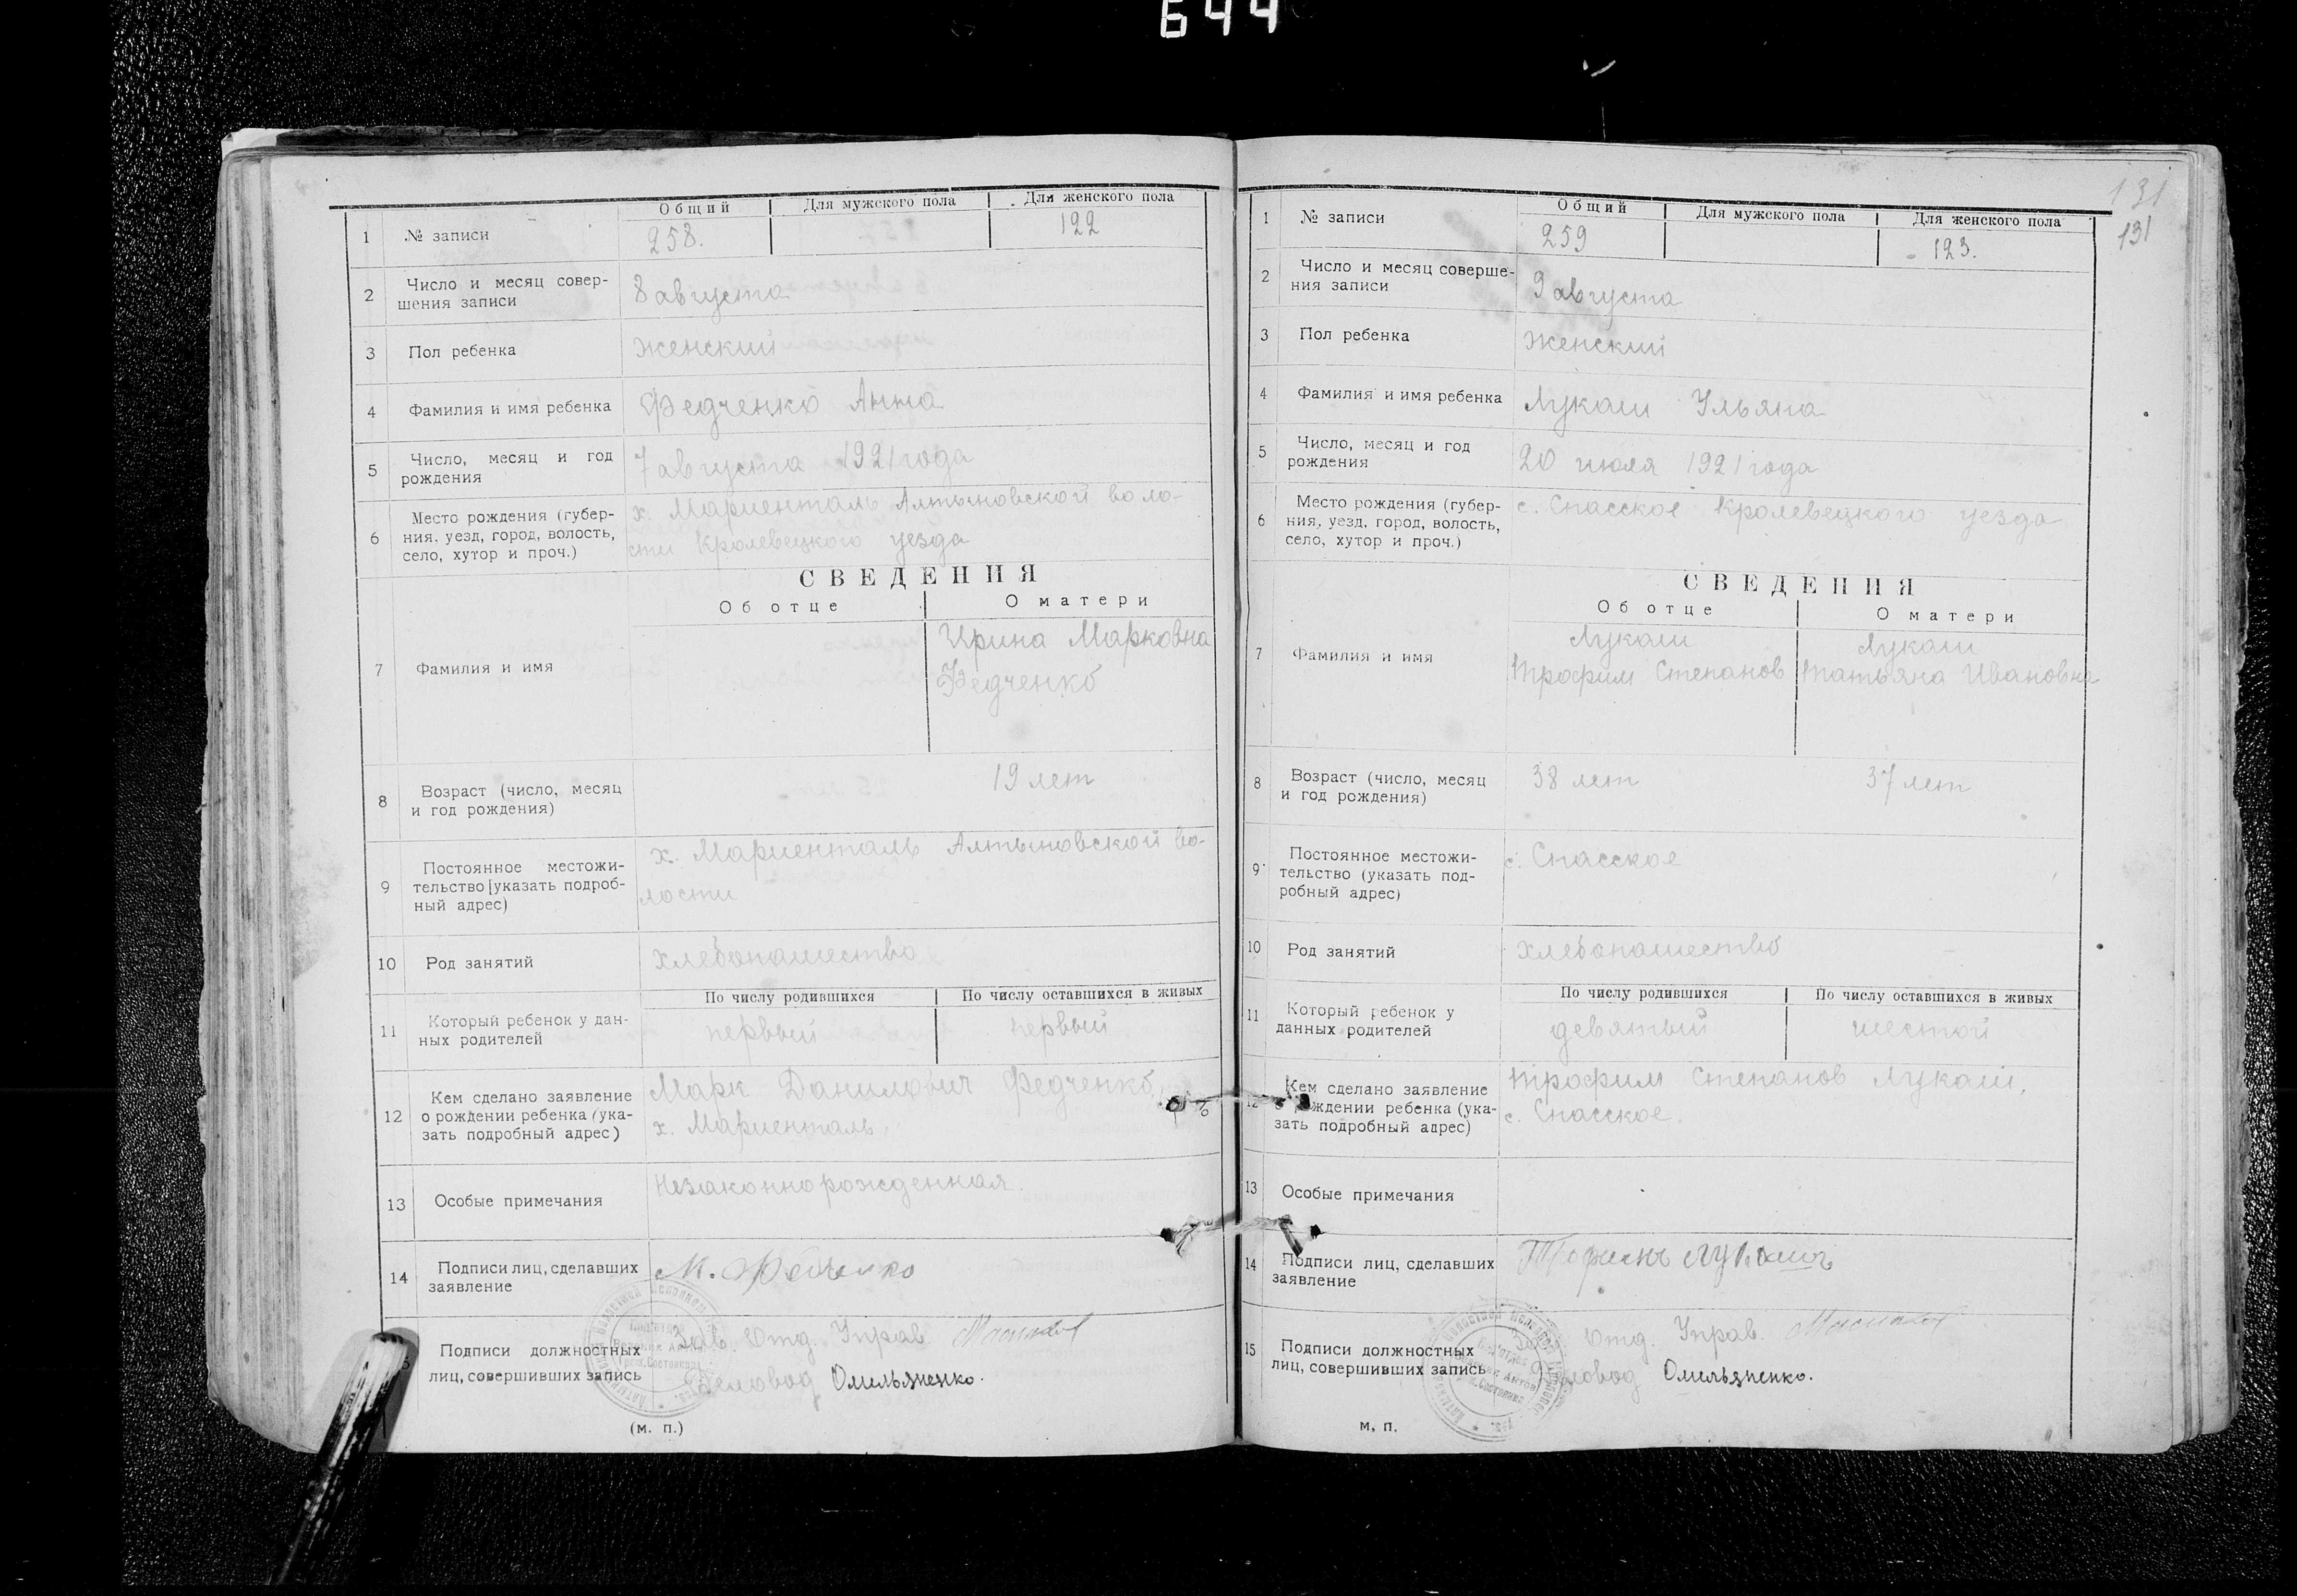 644
Общий Для мужского пола Для женского пола
1 № записи 258. 122
2 Число и месяц совер-
шения записи 8 августа
3 Пол ребенка Женский
4 Фамилия и имя ребенка Федченко Анна
5 Число, месяц и год
рождения 7 августа 1921 года
6 Место рождения (губер-
ния, уезд, город, волость,
село, хутор и проч.)
х. Мариенталь Алтыновской воло-
сти Кролевецкого уезда
СВЕДЕНИЯ
Об отце О матери
7 Фамилия и имя
Ирина Марковна
Федченко
8 Возраст (число, месяц
и год рождения) 19 лет
9 Постоянное местожи-
тельство [указать подроб-
ный адрес)
х. Мариенталь Алтыновской во-
лости
10 Род занятий хлебопашество
По числу родившихся По числу оставшихся в живых
11 Который ребенок у дан-
ных родителей первый первый
12 Кем сделано заявление
о рождении ребенка (ука-
зать подробный адрес)
Марк Данилович Федченко,
х. Мариенталь
13 Особые примечания Незаконнорожденная.
14 Подписи лиц, сделавших
заявление М. Федченко
Подписи должностных
лиц, совершивших запись
Зав. Отд. Управ.
Деловод Омельяненко.
(м. п.)
131
131
Общий Для мужского пола Для женского пола
1 № записи 259 123.
2 Число и месяц соверше-
ния записи 9 августа
3 Пол ребенка Женский
4 Фамилия и имя ребенка Лукаш Ульяна
5 Число, месяц и год
рождения 20 июля 1921 года
6 Место рождения (губер-
ния, уезд, город, волость,
село, хутор и проч.)
с. Спасское Кролевецкого уезда
СВЕДЕНИЯ
Об отце О матери
7 Фамилия и имя
Лукаш Лукаш
Трофим Степанов Татьяна Ивановна
8 Возраст (число, месяц
и год рождения) 38 лет 37 лет
9 Постоянное местожи-
тельство (указать под-
робный адрес)
с. Спасское
10 Род занятий хлебопашество
По числу родившихся По числу оставшихся в живых
11 Который ребенок у
данных родителей девятый шестой
12 Кем сделано заявление
о рождении ребенка (ука-
зать подробный адрес)
Трофим Степанов Лукаш,
с. Спасское.
13 Особые примечания
14 Подписи лиц, сделавших
заявление Трофимъ Лукашъ
15 Подписи должностных
лиц, совершивших запись
Зав. Отд. Управ.
Деловод Омельяненко.
м, п.